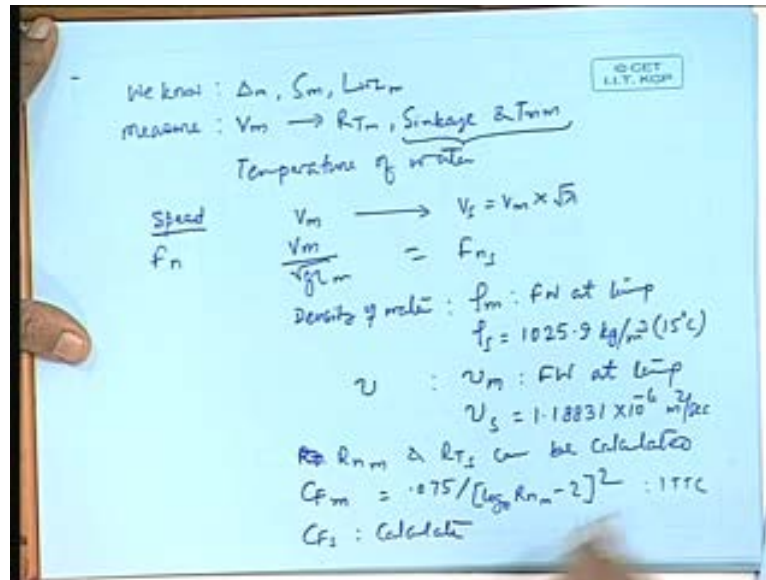 © CET
I.I.T. KGP
We know : Δm, Sm, LWLm
Measure : Vm → RTm, Sinkage & Trim
Temperature of water
Speed Vm → Vs = Vm × √λ
Fn Vm/√gLm = Fns
Density of water : ρm : FW at temp
ρs = 1025.9 kg/m³ (15°C)
υ : υm : FW at temp
υs = 1.18831 × 10⁻⁶ m²/sec
Rnm & RTs can be calculated
CFm = .075/[log₁₀ Rnm - 2]² : ITTC
CFs : Calculate